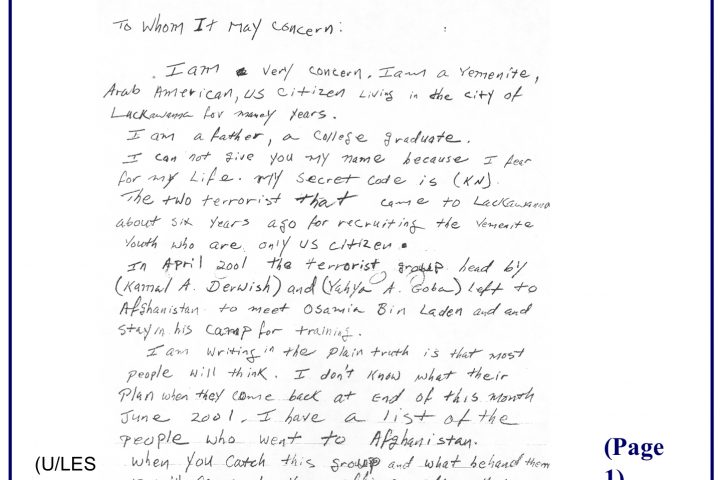 To Whom It May Concern:
I am a very concern. I am a Yemenite,
Arab American, US Citizen Living in the city of
Lackawanna for many years.
I am a father, a College graduate.
I can not give you my name because I fear
for my Life. my secret code is (KN).
The two terrorist that came to Lackawanna
about six years ago for recruiting the Yemenite
Youth who are only US Citizen.
In April 2001 the terrorist group head by
(Kamal A. Derwish) and (Yahya A. Goba) left to
Afghanistan to meet Osamia Bin Laden and and
stay in his camp for training.
I am writing in the plain truth is that most
people will think. I don't know what their
Plan when they come back at end of this month
June 2001. I have a list of the
people who went to Afghanistan.
when you catch this group and what behand them
(U/LES
(Page
1)